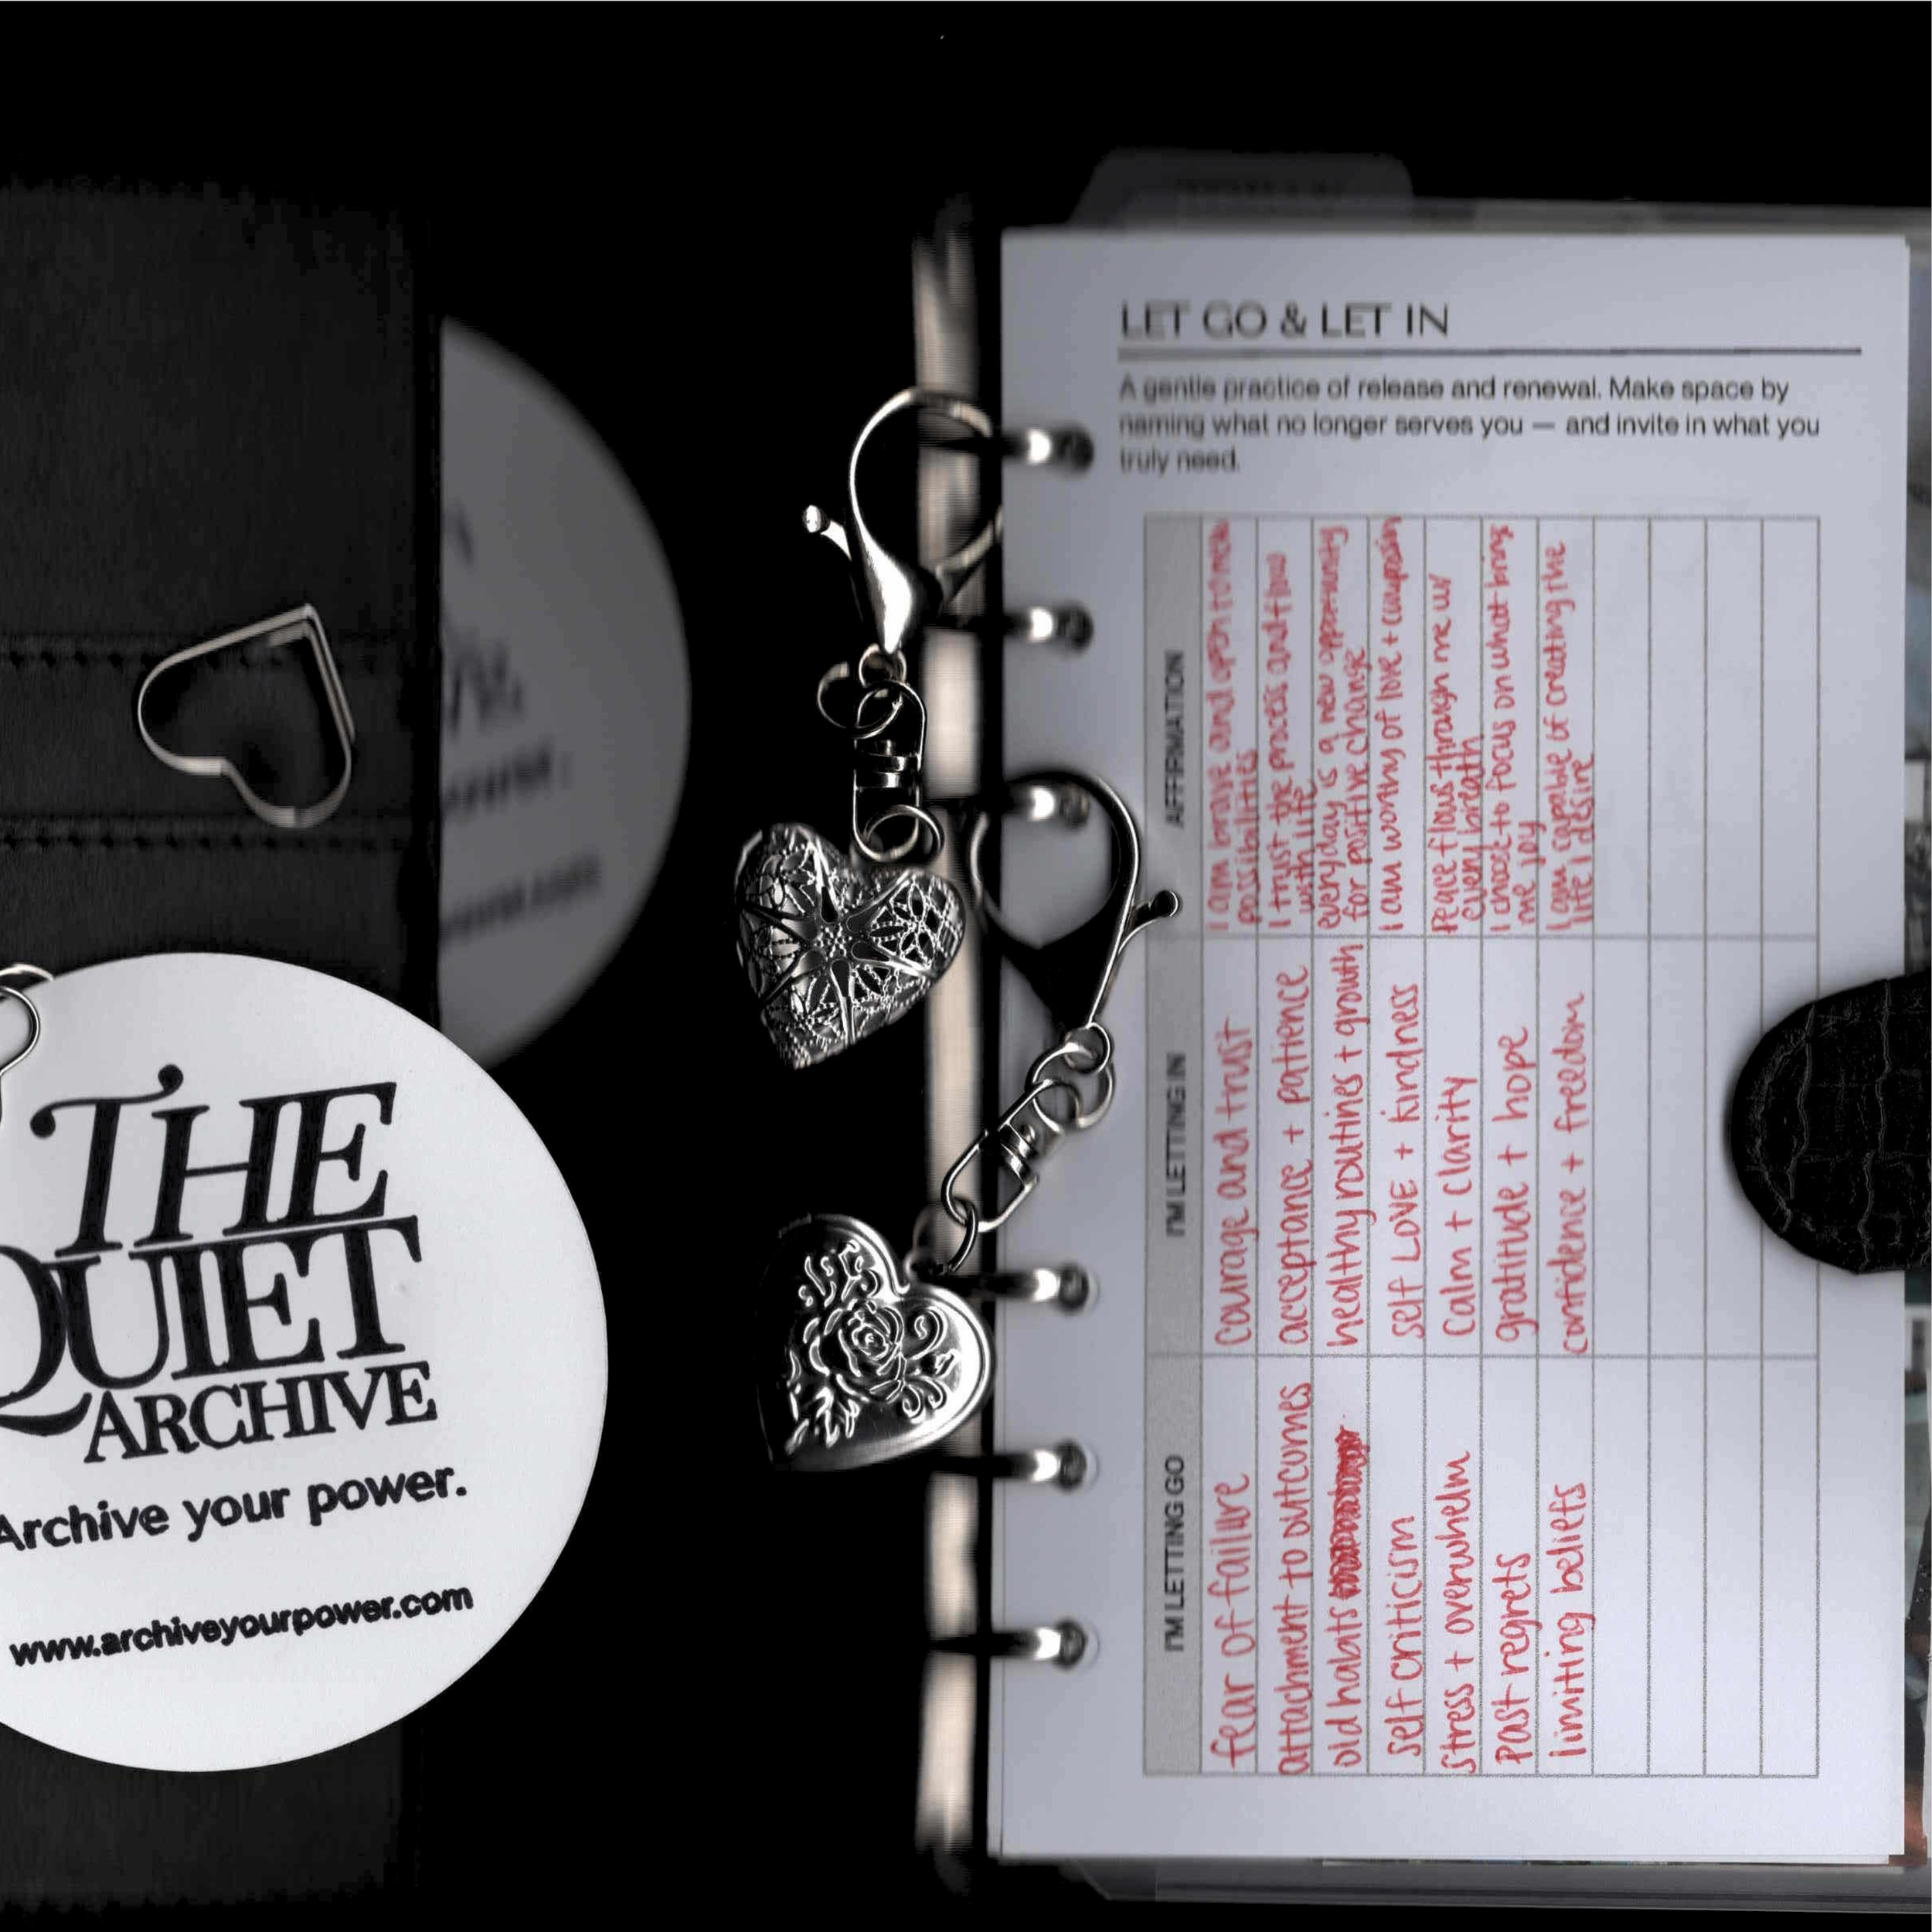 THE
QUIET
ARCHIVE
Archive your power.
www.archiveyourpower.com
LET GO & LET IN
A gentle practice of release and renewal. Make space by
naming what no longer serves you — and invite in what you
truly need.
I'M LETTING GO
I'M LETTING IN
AFFIRMATION
fear of failure
courage and trust
I am brave and open to new
possibilities
attachment to outcomes
acceptance + patience
I trust the process and flow
with life
old habits
healthy routines + growth
everyday is a new opportunity
for positive change
self criticism
self LOVE + kindness
I am worthy of love + compassion
stress + overwhelm
calm + clarity
Peace flows through me w/
every breath
Past regrets
gratitude + hope
I choose to focus on what brings
me joy
limiting beliefs
confidence + freedom
I am capable of creating the
life I desire